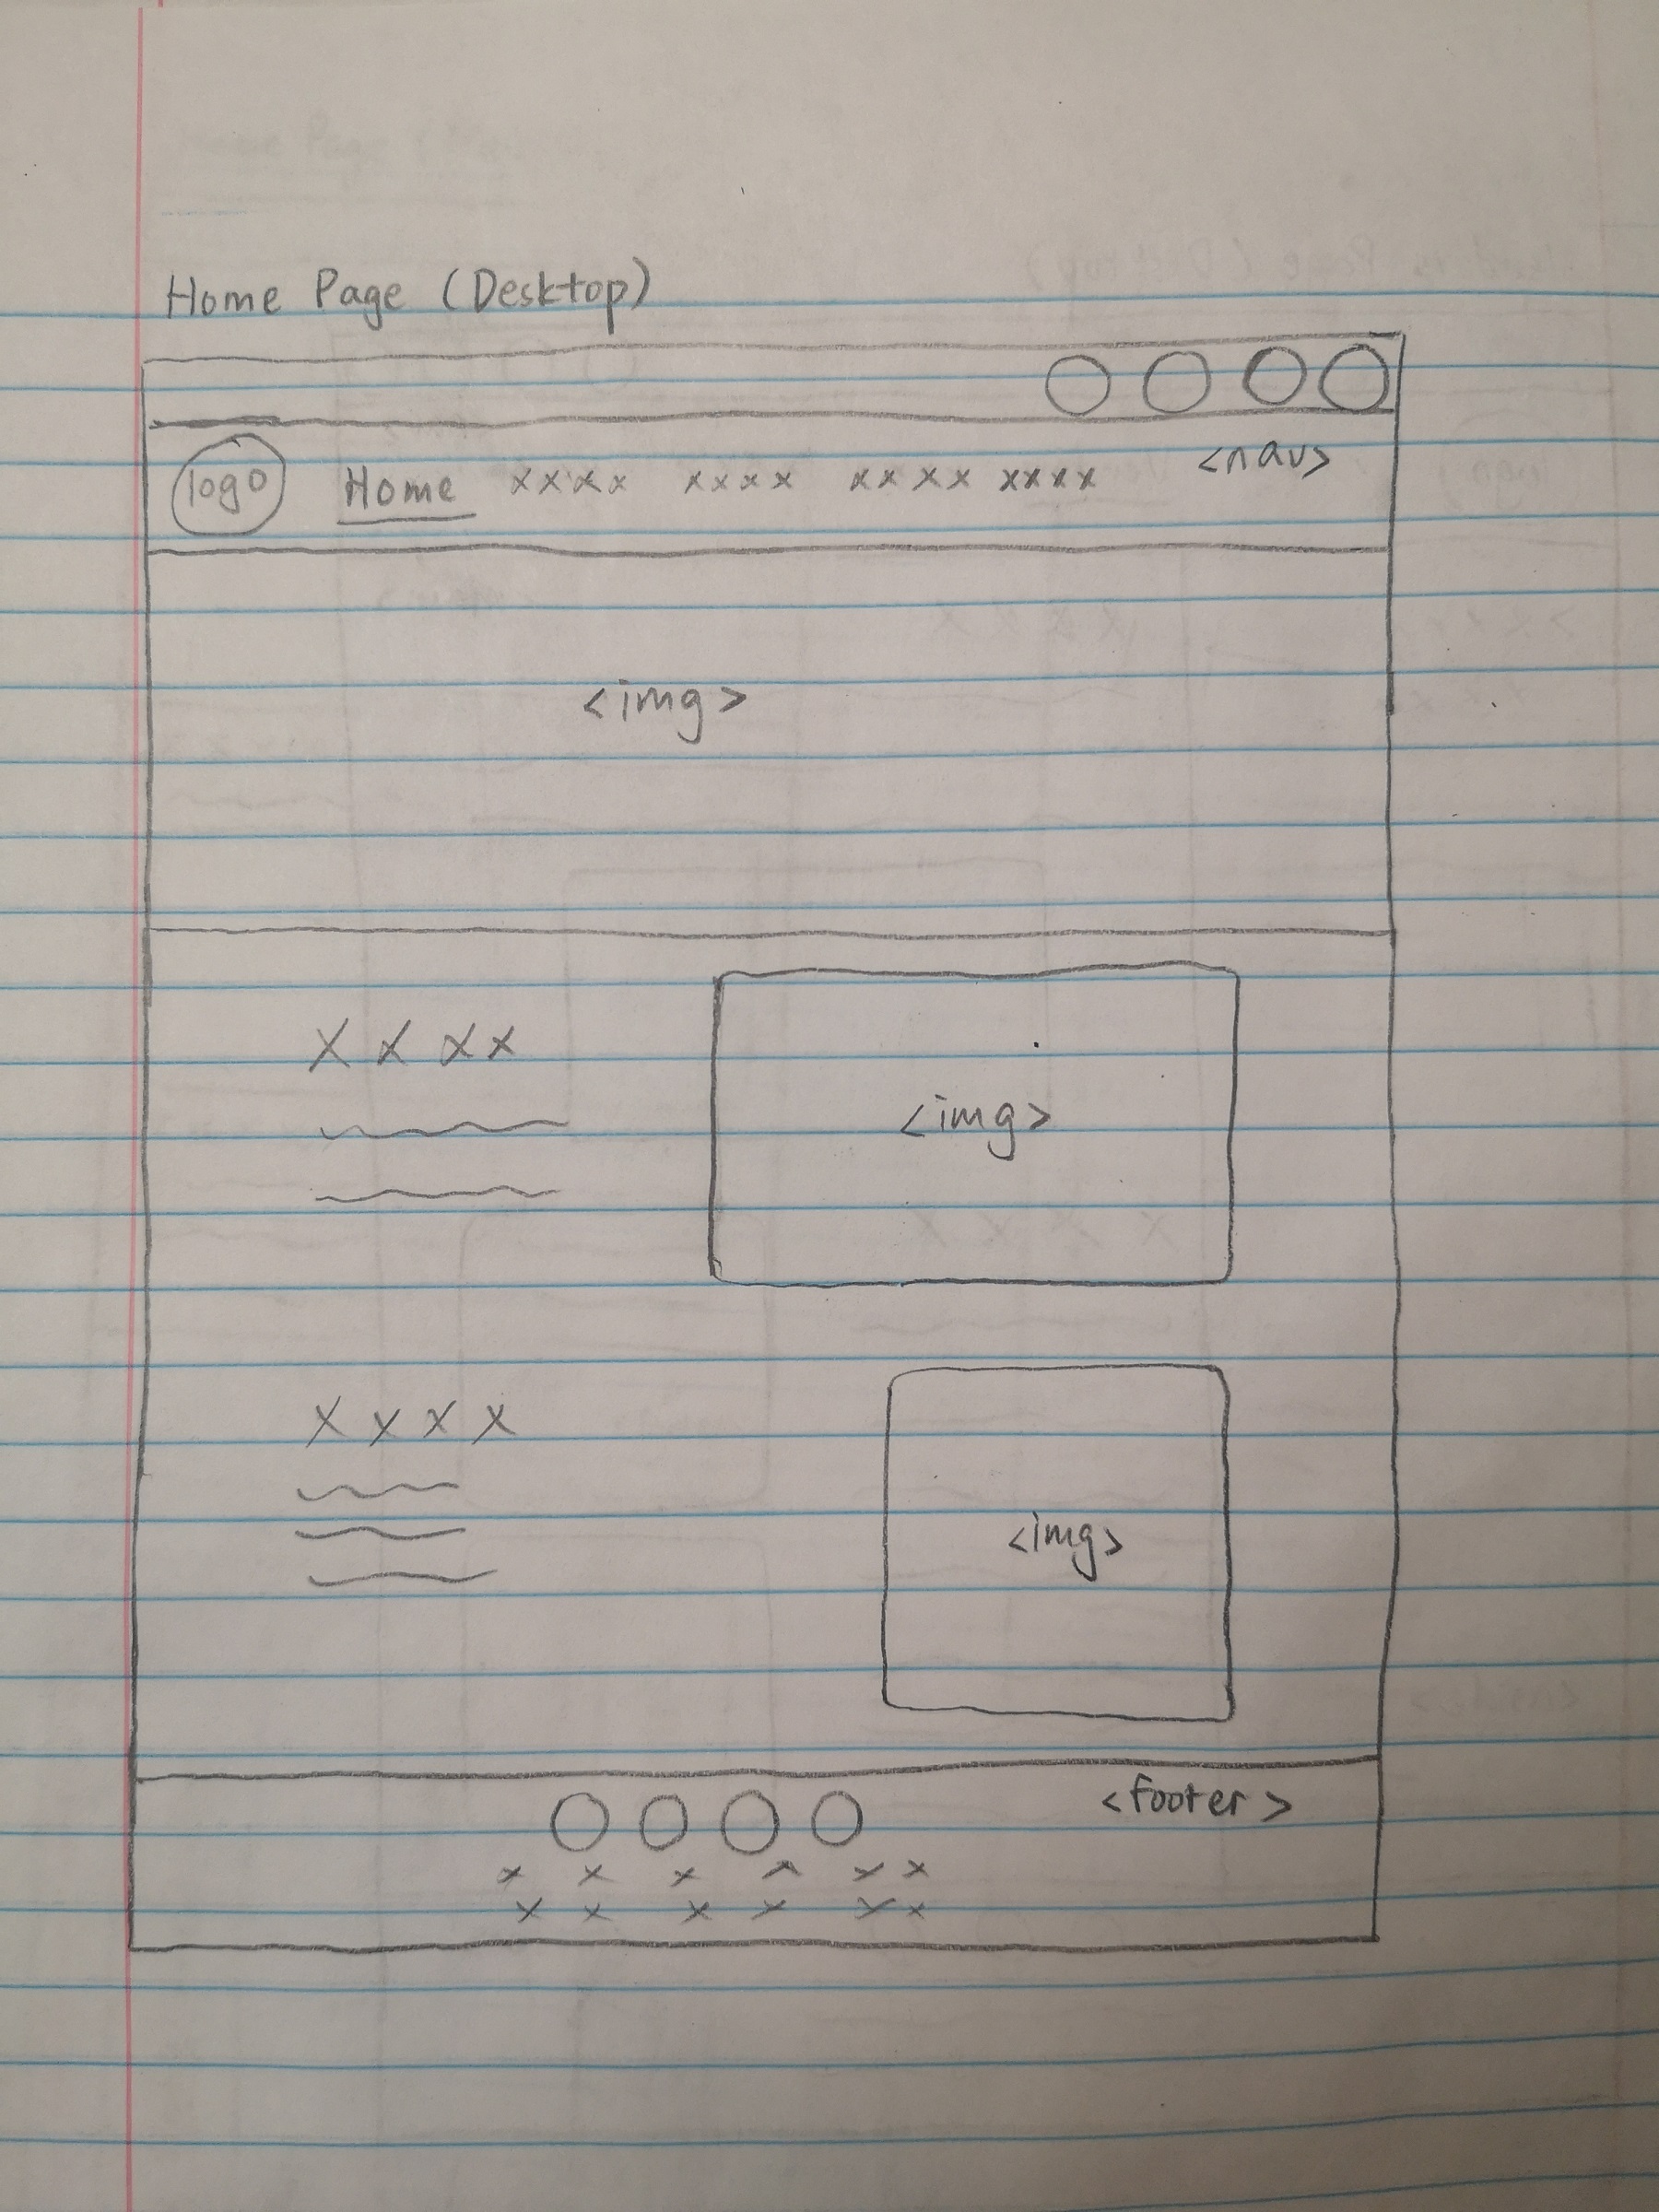 Home Page (Desktop)
logo Home xxxx xxxx xxxx xxxx <nav>
<img>
X X X X
<img>
X X X X
<img>
<footer>
x x x x x x
x x x x x x